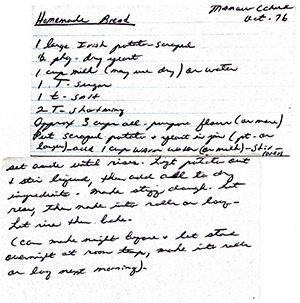 Homemade Bread
Oct. 76
1 large Irish potato - scraped
pkg. dry yeast
1 cup milk (may use dry) or water
1 T. sugar
1 t. salt
2 T. shortening
Approx 3 cups all-purpose flour (or more)
Put scraped potato & yeast in jar (pt. or
larger) add 1 cup warm water (or milk) - Stir
set aside until rises. Lift potato out
& stir liquid, then add all to dry
ingredients. Make stiff dough. Let
rise, then make into rolls or loaf.
Let rise then bake.
(Can make night before & let stand
overnight at room temp, make into rolls
or loaf next morning).